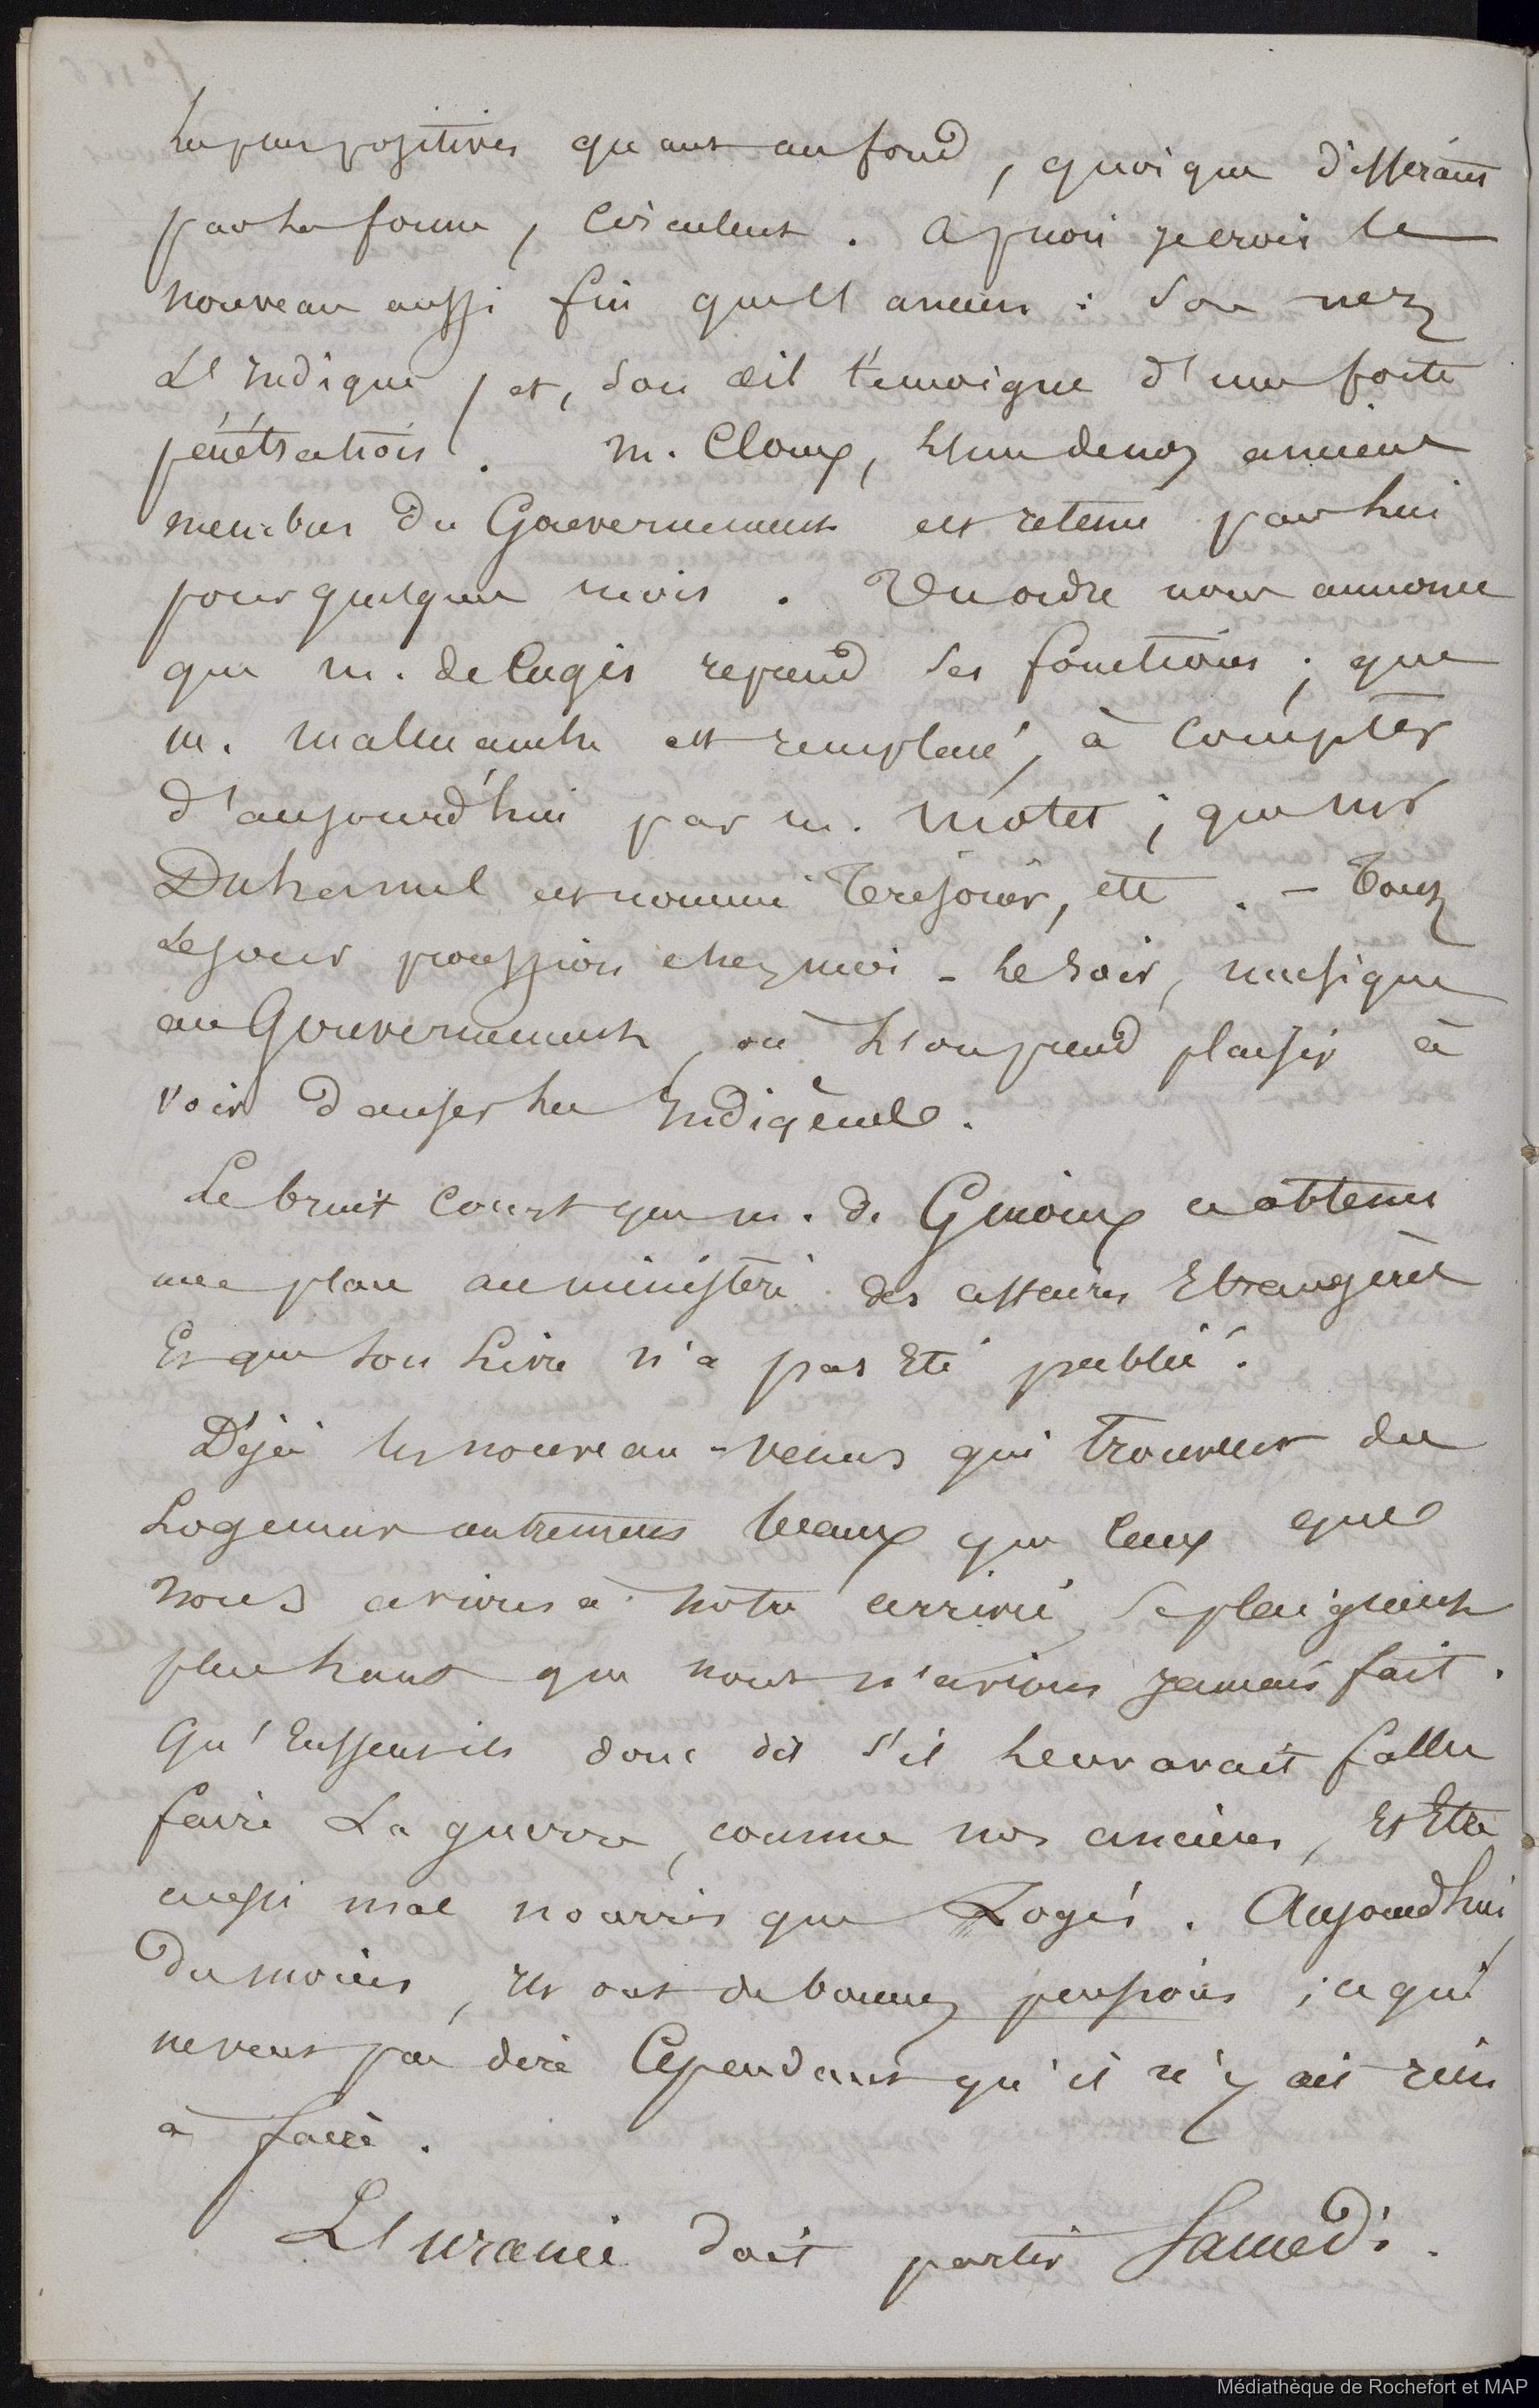 les plus positives quant au fond, quoique différant
par la forme, circulent. à quoi je crois le
nouveau aussi fin que l'ancien : son nez
l'indique, et, son œil témoigne d'une forte
pénétration. M. Cloux, l'un de nos anciens
membres du Gouvernement est retenu par lui
pour quelques mois. Un ordre nous annonce
que M. de Cugis reprend ses fonctions ; que
M. Mallemanche est remplacé, à compter
d'aujourd'hui par M. Motet ; que Mr
Duhamel est nommé Trésorier, ett. - Tous
les jours procession chez moi - le soir, musique
au Gouvernement, où l'on prend plaisir à
voir danser les Indigènes.
Le bruit court que M. de a obtenu
une place au ministère des affaires Etrangères
Et que son livre n'a pas Eté publié.
Déjà les nouveau-venus qui trouvent des
Logemens autrement beaux que ceux que
nous avions à notre arrivée, se plaignent
plus haut que nous n'avions jamais fait.
Qu'Eussent-ils donc dit s'il leur avait fallu
faire La guerre, comme nos anciens, Et Etre
aussi mal nourris que Logés. Aujourd'hui,
du moins, ils ont de bonnes pensions ; ce qui
ne veut pas dire Cependant qu'il n'y ait rien
à faire.
L'uranie doit partir Samedi.
Médiathèque de Rochefort et MAP